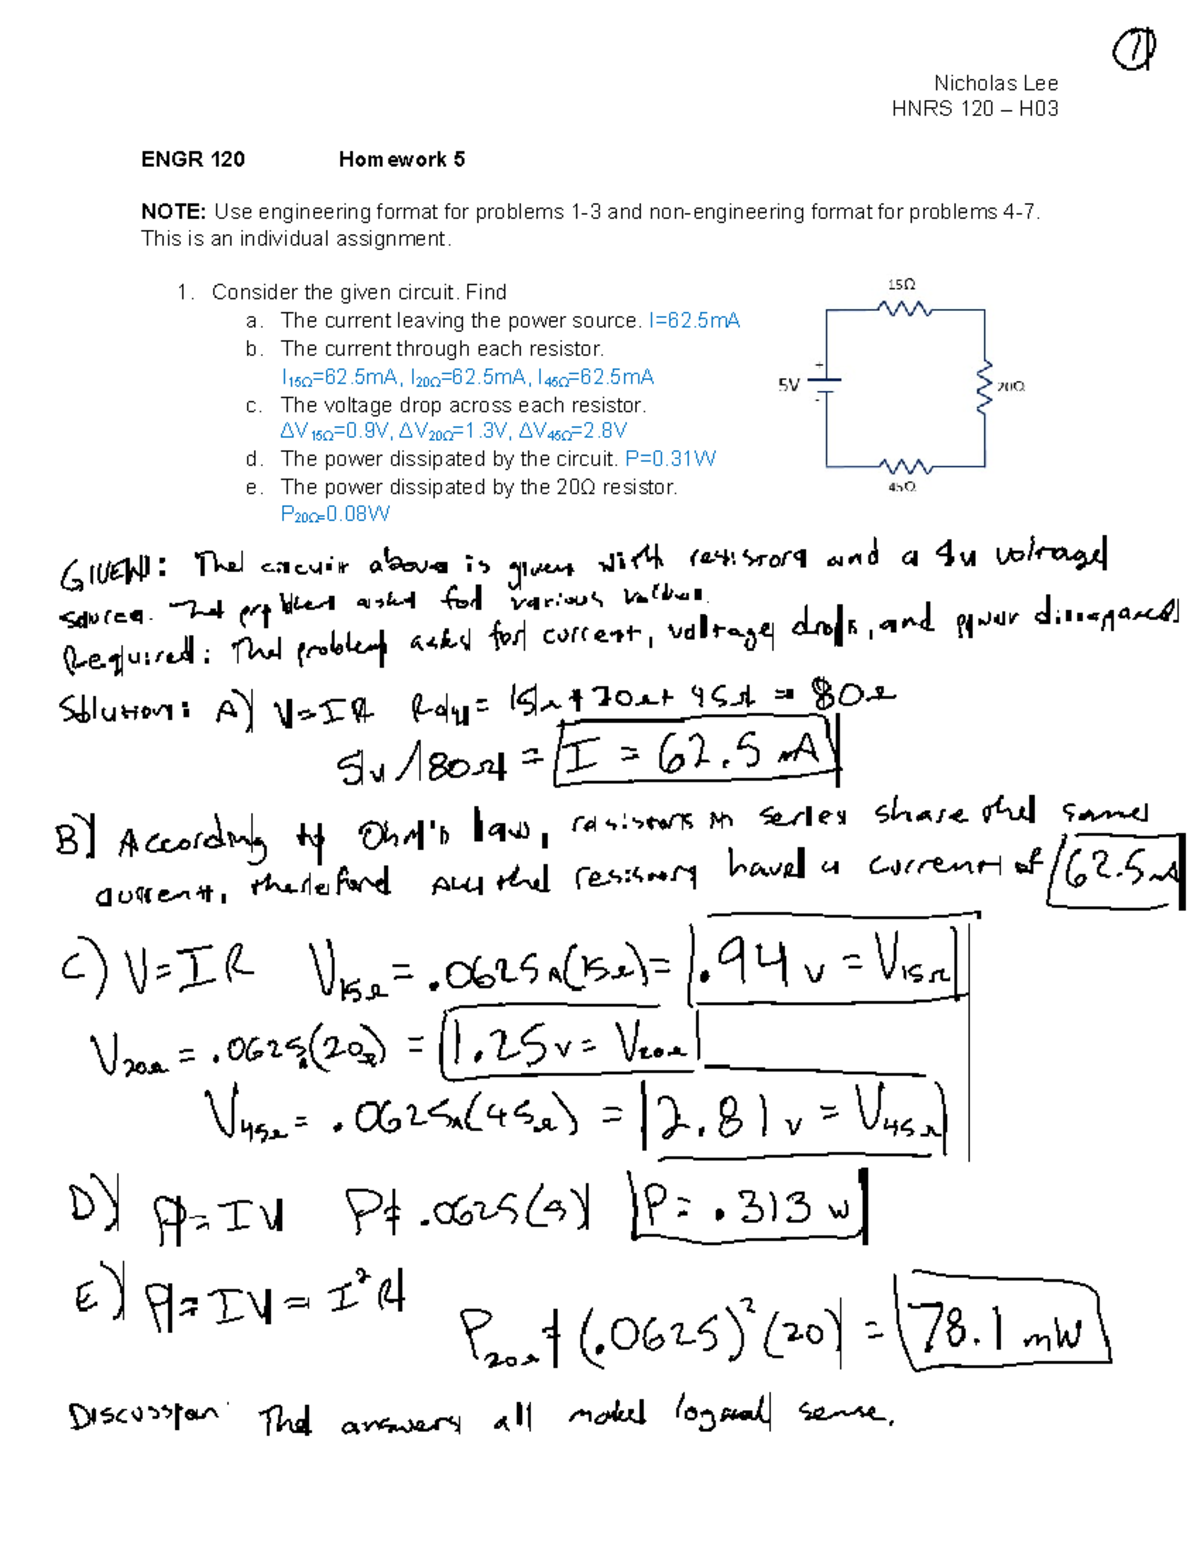 1
Nicholas Lee
HNRS 120 – H03
ENGR 120 Homework 5
NOTE: Use engineering format for problems 1-3 and non-engineering format for problems 4-7.
This is an individual assignment.
1. Consider the given circuit. Find
a. The current leaving the power source. I=62.5mA
b. The current through each resistor.
I15Ω=62.5mA, I20Ω=62.5mA, I45Ω=62.5mA
c. The voltage drop across each resistor.
ΔV15Ω=0.9V, ΔV20Ω=1.3V, ΔV45Ω=2.8V
d. The power dissipated by the circuit. P=0.31W
e. The power dissipated by the 20Ω resistor.
P20Ω=0.08W
15Ω
+
5V
-
20Ω
45Ω
GIVEN: The circuit above is given with resistors and a 5v voltage
source. The problem asked for various values.
Required: The problem asks for current, voltage drops, and power dissipated
Solution: A) V=IR = 15Ω + 20Ω + 45Ω = 80Ω
5v/80Ω = I = 62.5 mA
B) According to Ohm's law, resistors in series share the same
current, therefore all the resistors have a current of 62.5mA
C) V=IR V15Ω = .0625A(15Ω) = .94v = V15Ω
V20Ω = .0625A(20Ω) = 1.25v = V20Ω
V45Ω = .0625A(45Ω) = 2.81v = V45Ω
D) P=IV P= .0625(5) P= .313 w
E) P=IV = I²R P20Ω = (.0625)²(20) = 78.1 mW
Discussion: The answers all make logical sense.